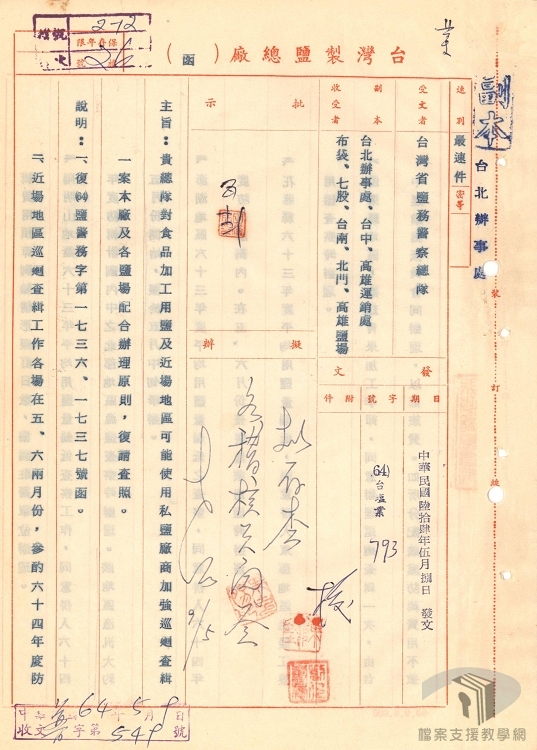 台灣製鹽總廠（函）
副本
台北辦事處
速別
最速件
密等
受文者
台灣省鹽務警察總隊
副本
收受者
台北辦事處、台中、高雄運銷處
布袋、七股、台南、北門、高雄鹽場
發文
日期
中華民國陸拾肆年伍月捌日 發文
字號
(64)台塩業 793
附件
批示
擬辦
主旨：貴總隊對食品加工用鹽及近場地區可能使用私鹽廠商加強巡邏查緝
一案本廠及各鹽場配合辦理原則，復請查照。
說明：一、復(64)鹽警務字第一七三六、一七三七號函。
二、近場地區巡邏查緝工作各場在五、六兩月份，參酌六十四年度防
裝訂線
保存年限
檔號
2-12
收文
64年5月9日
字第549號
檔案支援教學網